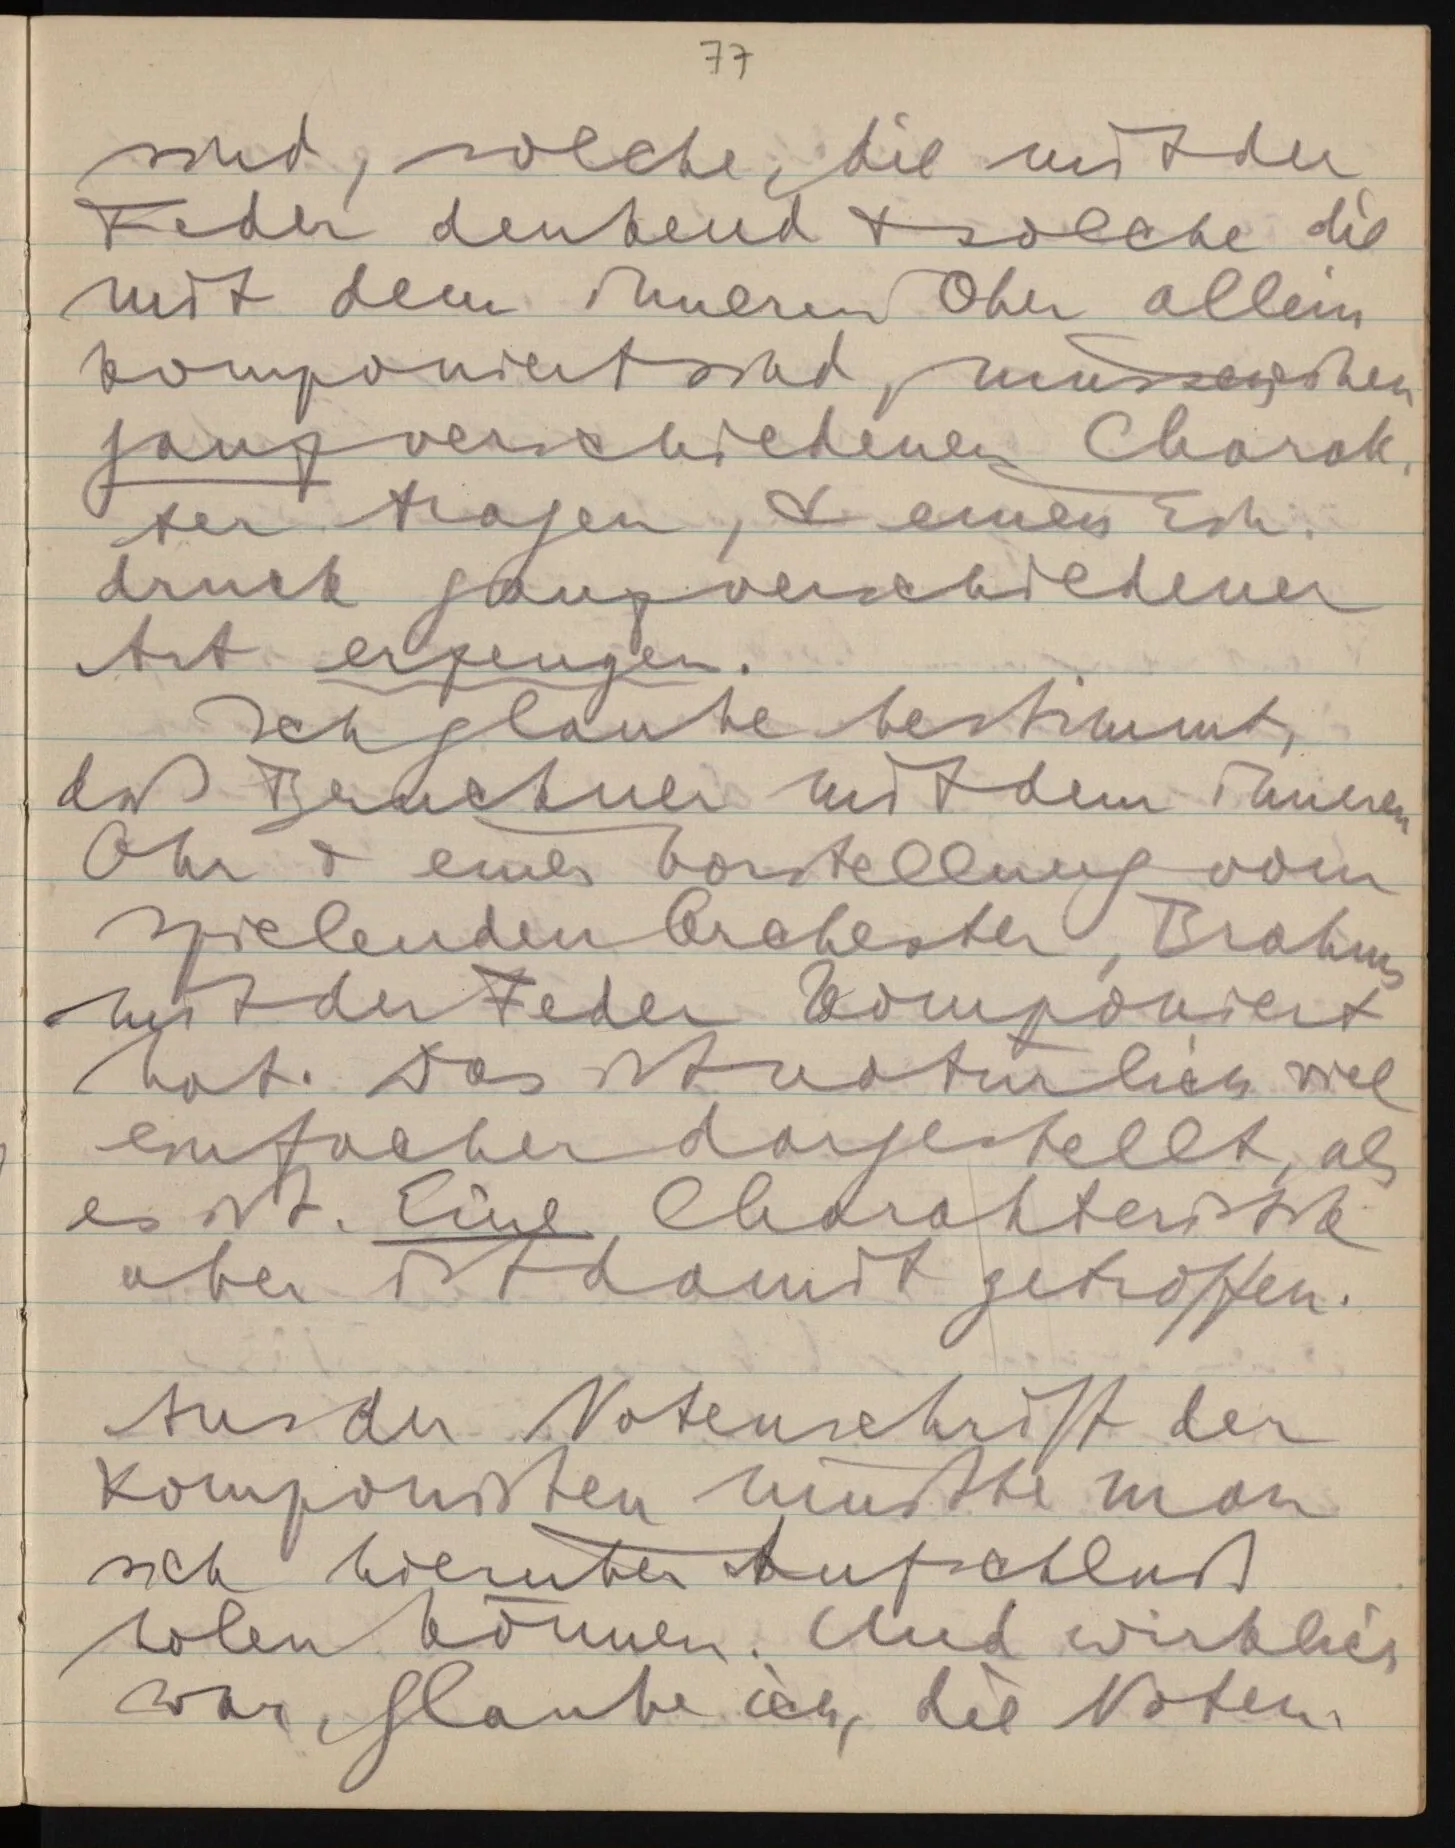 77
sind, solche, die mit der
Feder denkend & solche die
mit dem inneren Ohr allein
komponiert sind, müssen einen
ganz verschiedenen Charak-
ter tragen, & einen Ein-
druck ganz verschiedener
Art erzeugen.
Ich glaube bestimmt,
daß Bruckner mit dem inneren
Ohr & einer Vorstellung vom
spielenden Orchester, Brahms
mit der Feder komponiert
hat. Das ist natürlich viel
einfacher dargestellt, als
es ist. Eine Charakteristik
aber ist damit getroffen.
Aus der Notenschrift der
Komponisten müßte man
sich hierüber Aufschluß
holen können. Und wirklich
war, glaube ich, die Noten-